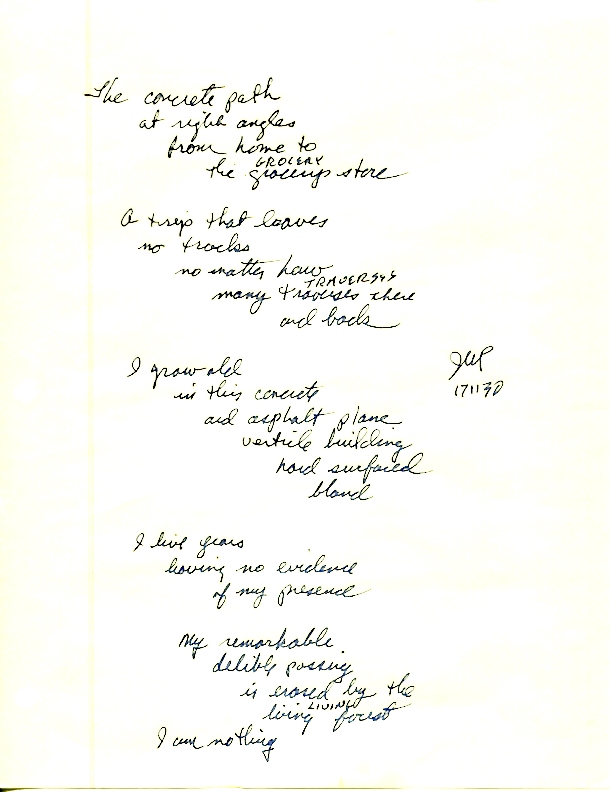 The concrete path
at right angles
from home to
GROCERY
the grocery store
A trip that leaves
no tracks
no matter how
TRAVERSES
many traverses there
and back
I grow old
in this concrete
and asphalt plane
verticle building
hard surfaced
bland
JWP
171130
I live years
leaving no evidence
of my presence
My remarkable
delible passing
is erased by the
LIVING
living forest
I am nothing